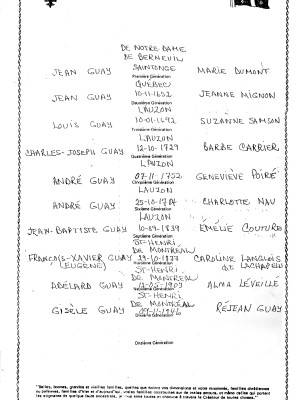 DE NOTRE DAME
DE BERNEUIL
SAINTONGE
JEAN GUAY MARIE DUMONT
Première Génération
QUÉBEC
10-11-1652
JEAN GUAY JEANNE MIGNON
Deuxième Génération
LAUZON
10-01-1692
LOUIS GUAY SUZANNE SAMSON
Troisième Génération
LAUZON
12-10-1729
CHARLES-JOSEPH GUAY BARBE CARRIER
Quatrième Génération
LAUZON
07-11-1752
ANDRÉ GUAY GENEVIÈVE POIRÉ
Cinquième Génération
LAUZON
ANDRÉ GUAY CHARLOTTE NAU
Sixième Génération
LAUZON
10-09-1839
JEAN-BAPTISTE GUAY EMÉLIE COUTURE
Septième Génération
ST-HENRI
DE MONTRÉAL
FRANÇOIS-XAVIER GUAY CAROLINE LANGLOIS
(EUGÈNE) de LACHAPELLE
Huitième Génération
ST-HENRI
DE MONTRÉAL
ADÉLARD GUAY ALMA LÉVEILLÉ
Neuvième Génération
ST-HENRI
DE MONTRÉAL
GISÈLE GUAY RÉJEAN GUAY
Dixième Génération
Onzième Génération